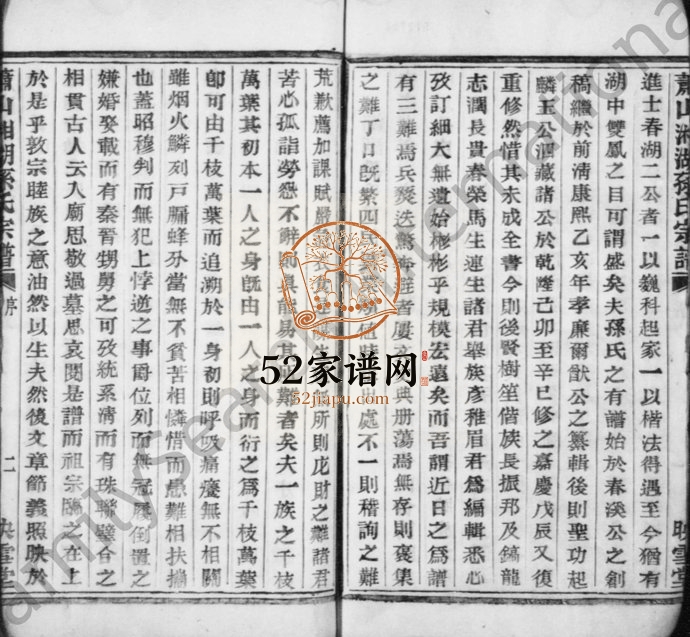 蕭山湘湖孫氏宗譜
映雪堂
進士春湖二公者一以巍科起家一以楷法得遇至今猶有
湖中雙鳳之目可謂盛矣夫孫氏之有譜始於春溪公之創
稿繼於前清康熙乙亥年孝廉爾猷公之纂輯後則聖功起
麟玉公涵藏諸公於乾隆己卯至辛巳修之嘉慶戊辰又復
重修然惜其未成全書今則賢樹笙偕族長振邦及鎬龍
志潤長貴春榮馬生連生諸君舉族彥稚眉君為編輯悉心
攷訂細大無遺始彬彬乎規模宏遠矣而吾謂近日之修
有三難焉兵燹迭驚典冊蕩焉無存則裒集
之難丁口旣繁處不一則稽詢之難
荒歉薦加課賦嚴所則庀財之難諸君
苦心孤詣勞怨不辭難者矣夫一族之千枝
萬葉其初本一人之身旣由一人之身而衍之為千枝萬葉
卽可由千枝萬葉而追溯於一身初則呼吸痛癢無不相關
雖烟火鱗列戸牖蜂分當無不貧苦相憐惜而患難相扶攜
也蓋昭穆判而無犯上悖逆之事爵位列而無冠履倒置之
嫌婚娶載而有秦晉甥舅之可攷統系清而有珠聯璧合之
相貫古人云入廟思敬過墓思哀閱是譜而祖宗臨之在上
於是乎敦宗睦族之意油然以生夫然後文章節義照映於
蕭山湘湖孫氏宗譜
序
二
映雪堂
52家谱网
52jiapu.com